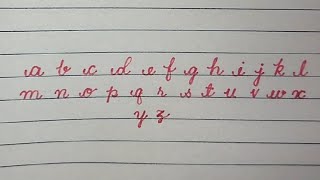 a b c d e f g h i j k l
m n o p q r s t u v w x
y z